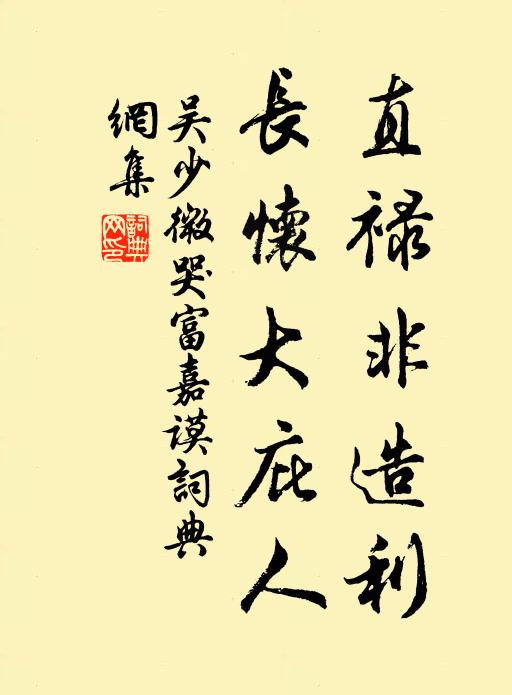 直祿非造利
長懷大庇人
吴少微哭富嘉謨詞典
網集
詞典
网印